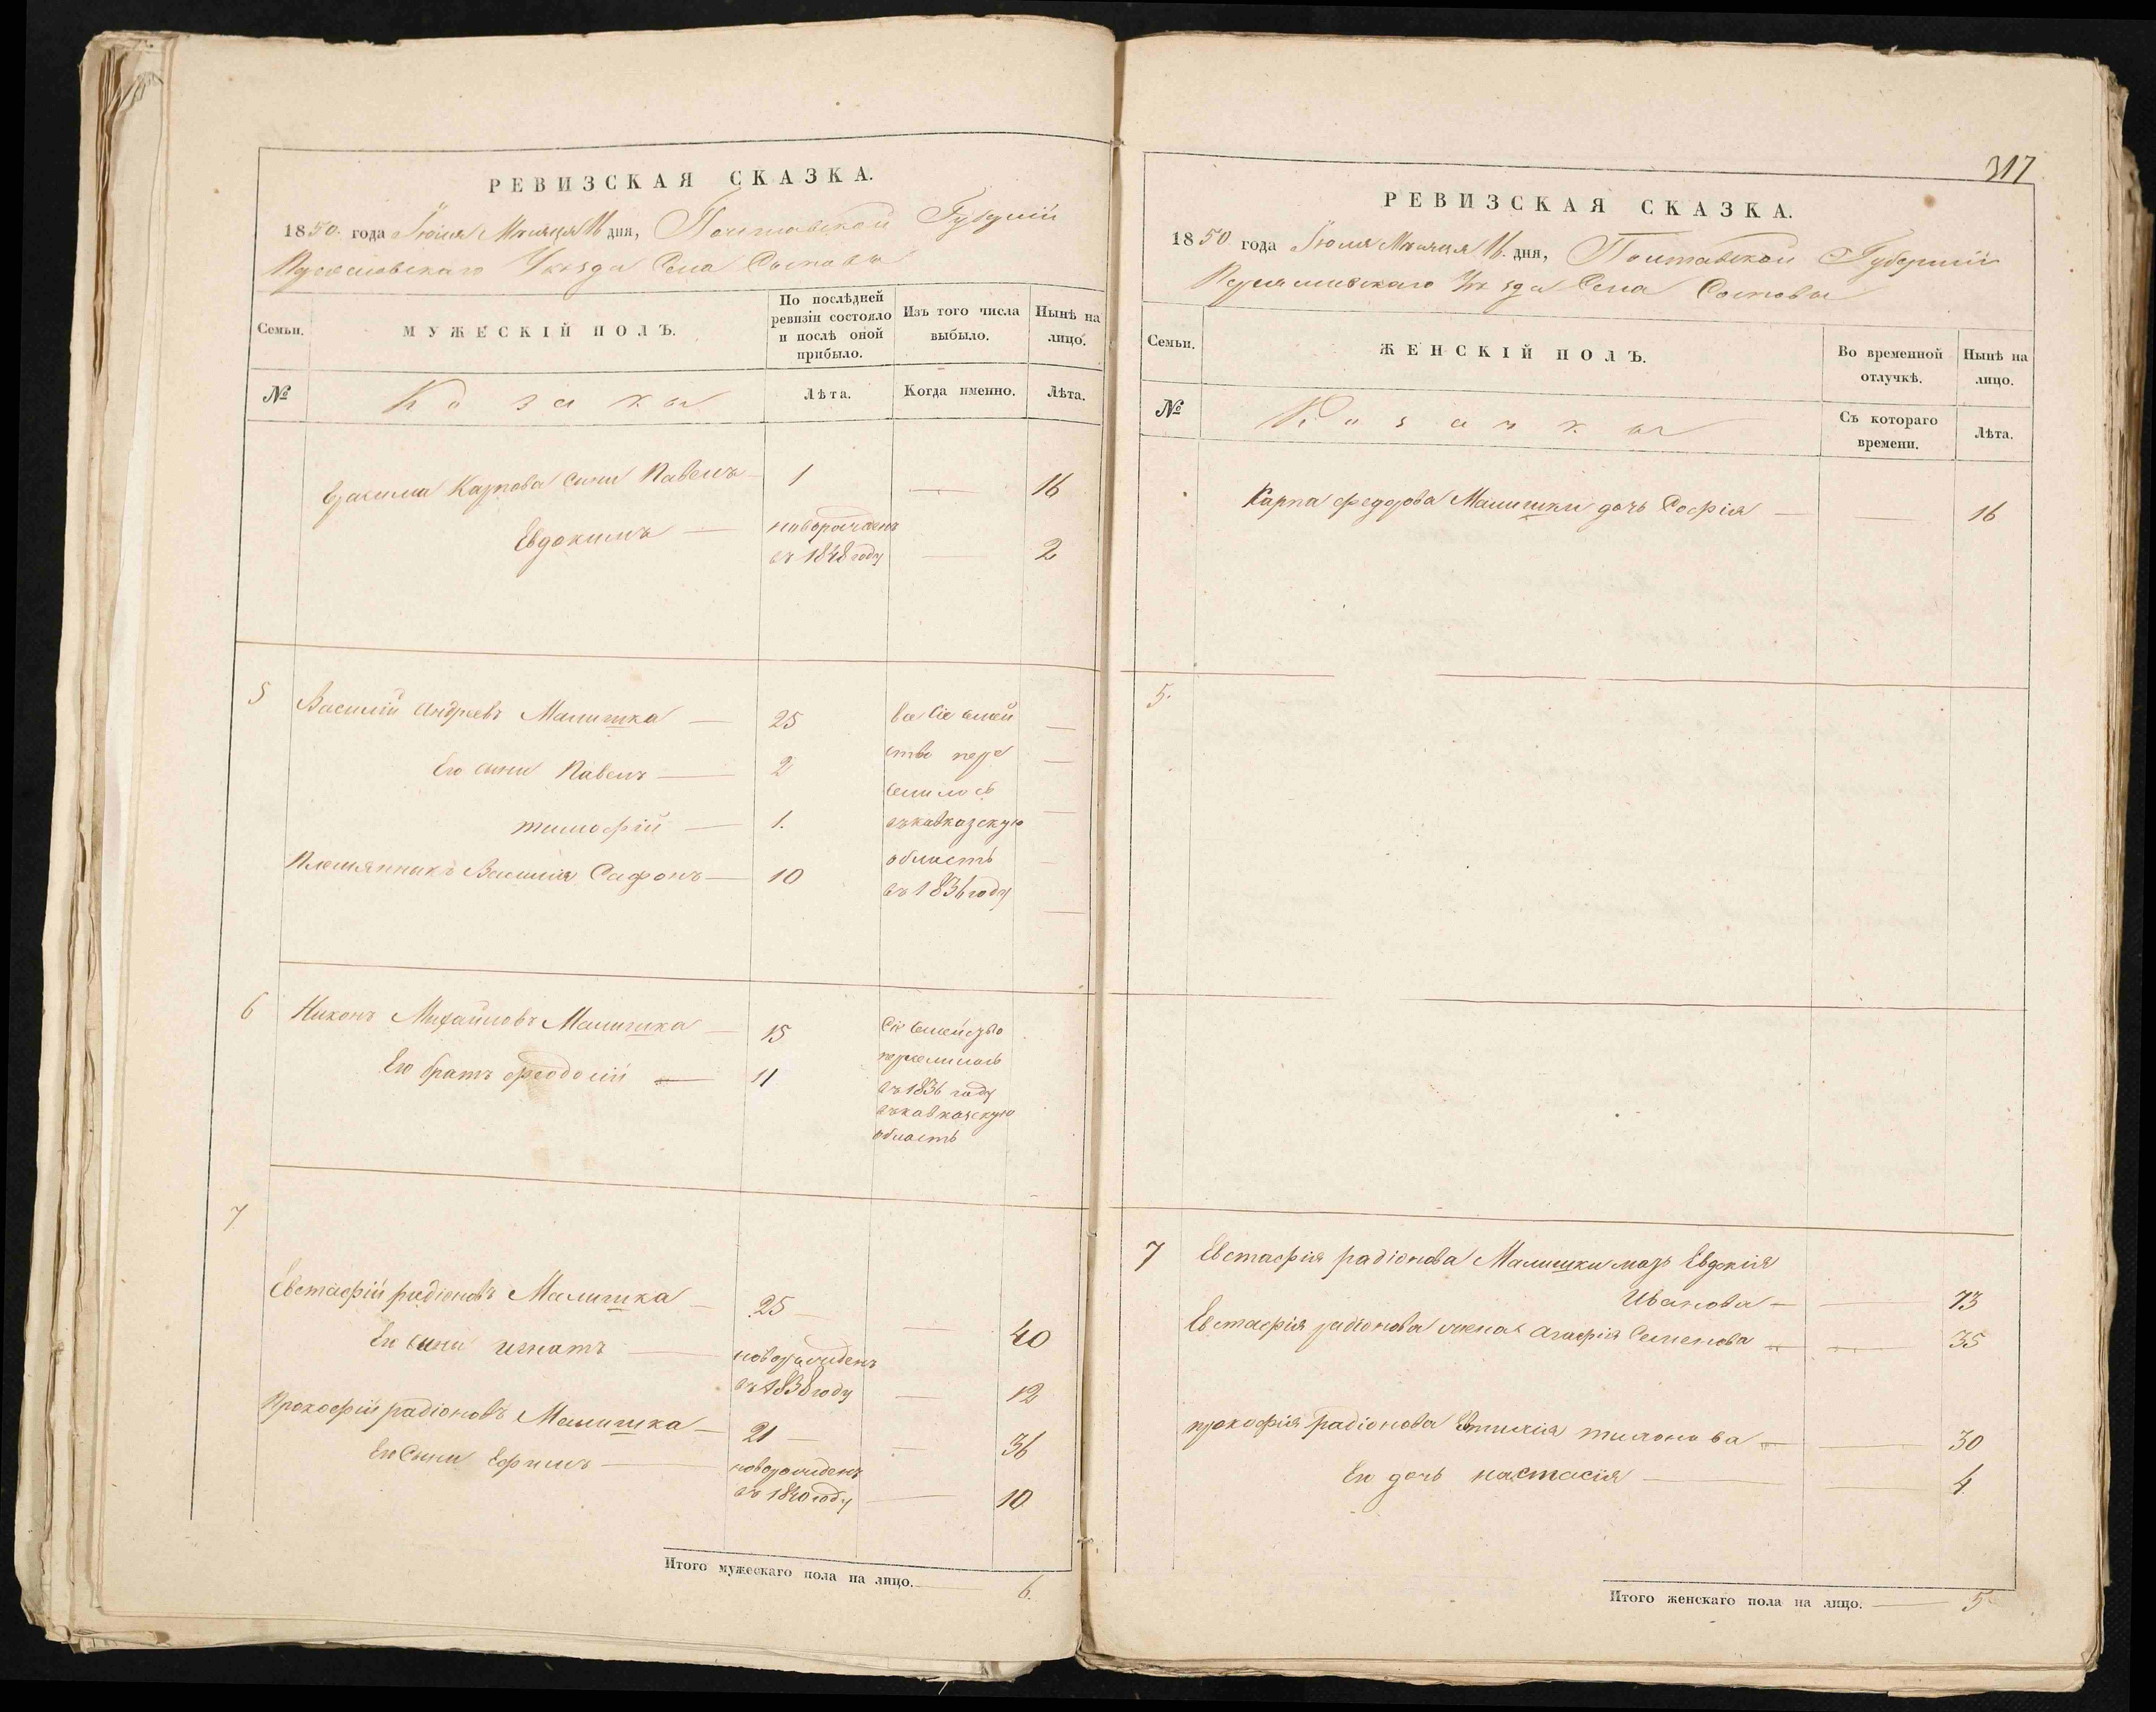 РЕВИЗСКАЯ СКАЗКА.
1850. года Іюля Мѣсяца 16 дня, Полтавской Губерніи
Переяславскаго Уѣзда Села Сосновы
Семьи.
МУЖЕСКІЙ ПОЛЪ.
По послѣдней ревизіи состояло и послѣ оной прибыло.
Изъ того числа выбыло.
Нынѣ на лицо.
№
Козаки
Лѣта.
Когда именно.
Лѣта.
Карпова сынъ Павелъ — 1 — 16
Евдокимъ — новорожденъ
въ 1848 году — 2
5 Василій Андреевъ Малишка — 25 все сіе семей —
ство пере
Его сыни Павелъ — 2 —
селилось
тимофій — 1. въ кавказскую —
область
Племянникъ Василія Сафонъ — 10 —
въ 1836 году
—
6 Никонъ Михайловъ Малишка — 15 Сіе семейство
переселилось
Его братъ Феодосій — 11 въ 1836 году
въ кавказскую
область
7
Евстафій радіоновъ Малишка — 25 — 40
Его сынъ игнатъ — новорожденъ
въ 1838 году — 12
Прокофій радіоновъ Малишка — 21 — 36
Его Сынъ Ефимъ — новорожденъ
въ 1840 году — 10
Итого мужескаго пола на лицо. — 6.
317
РЕВИЗСКАЯ СКАЗКА.
1850 года Іюля Мѣсяца 16. дня, Полтавской Губерніи
Переяславскаго Уѣзда Села Сосновы
Семьи.
ЖЕНСКІЙ ПОЛЪ.
Во временной отлучкѣ.
Нынѣ на лицо.
№
Козачки
Съ котораго времени.
Лѣта.
Карпа федорова Малишки дочь Софія — — 16
5.
7 Евстафія радіонова Малишки Евдокія
Иванова — — 73
Евстафія радіонова жена Агафія Семенова — — 35
прокофія радіонова — — 30
Ея дочь настасія — — 4
Итого женскаго пола на лицо. — 5